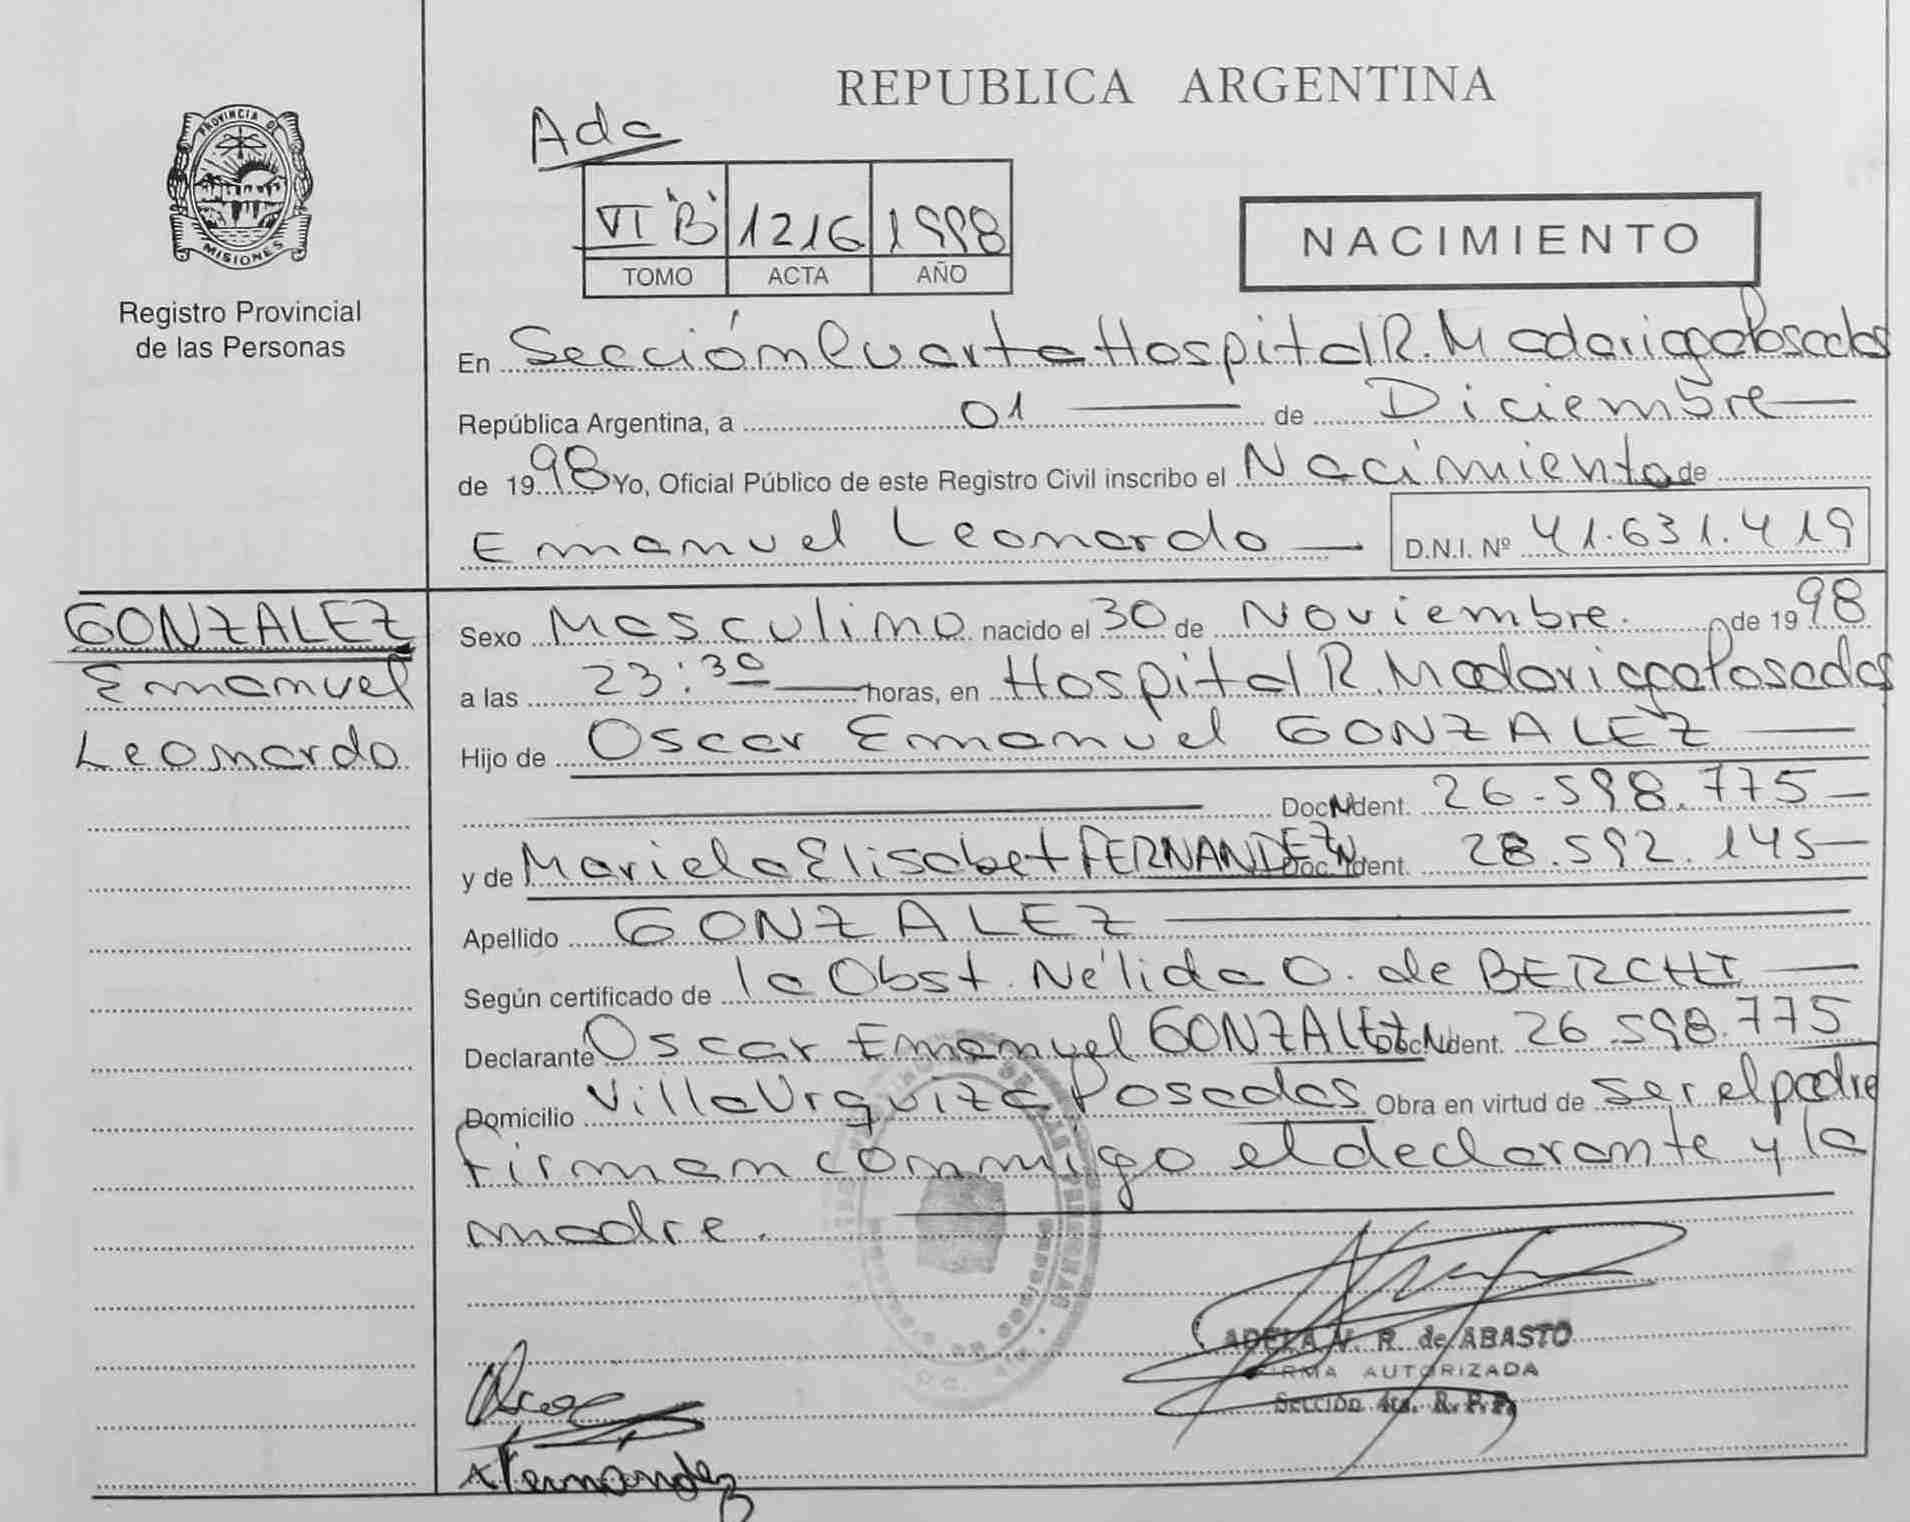 REPUBLICA ARGENTINA
PROVINCIA DE
MISIONES
Registro Provincial
de las Personas
Ada
VI "B" 1216 1998
TOMO ACTA AÑO
NACIMIENTO
En Sección Cuarta Hospital R. Madariaga Posadas
República Argentina, a 01 de Diciembre
de 1998 Yo, Oficial Público de este Registro Civil inscribo el Nacimiento de
Emanuel Leonardo D.N.I. Nº 41.631.419
GONZALEZ
Emanuel
Leonardo
Sexo Masculino nacido el 30 de Noviembre. de 1998
a las 23:30 horas, en Hospital R. Madariaga Posadas
Hijo de Oscar Emanuel GONZALEZ
Doc. N Ident. 26.598.775
y de Mariela Elisabet FERNANDEZ Doc. N Ident. 28.592.145
Apellido GONZALEZ
Según certificado de la Obst. Nélida O. de BERCHI
Declarante Oscar Emanuel GONZALEZ Doc. N Ident. 26.598.775
Domicilio Villa Urquiza Posadas Obra en virtud de ser el padre
firman conmigo el declarante y la
madre.
ADELA V. R. de ABASTO
FIRMA AUTORIZADA
Sección 4ta. R. P. P.
Fernández